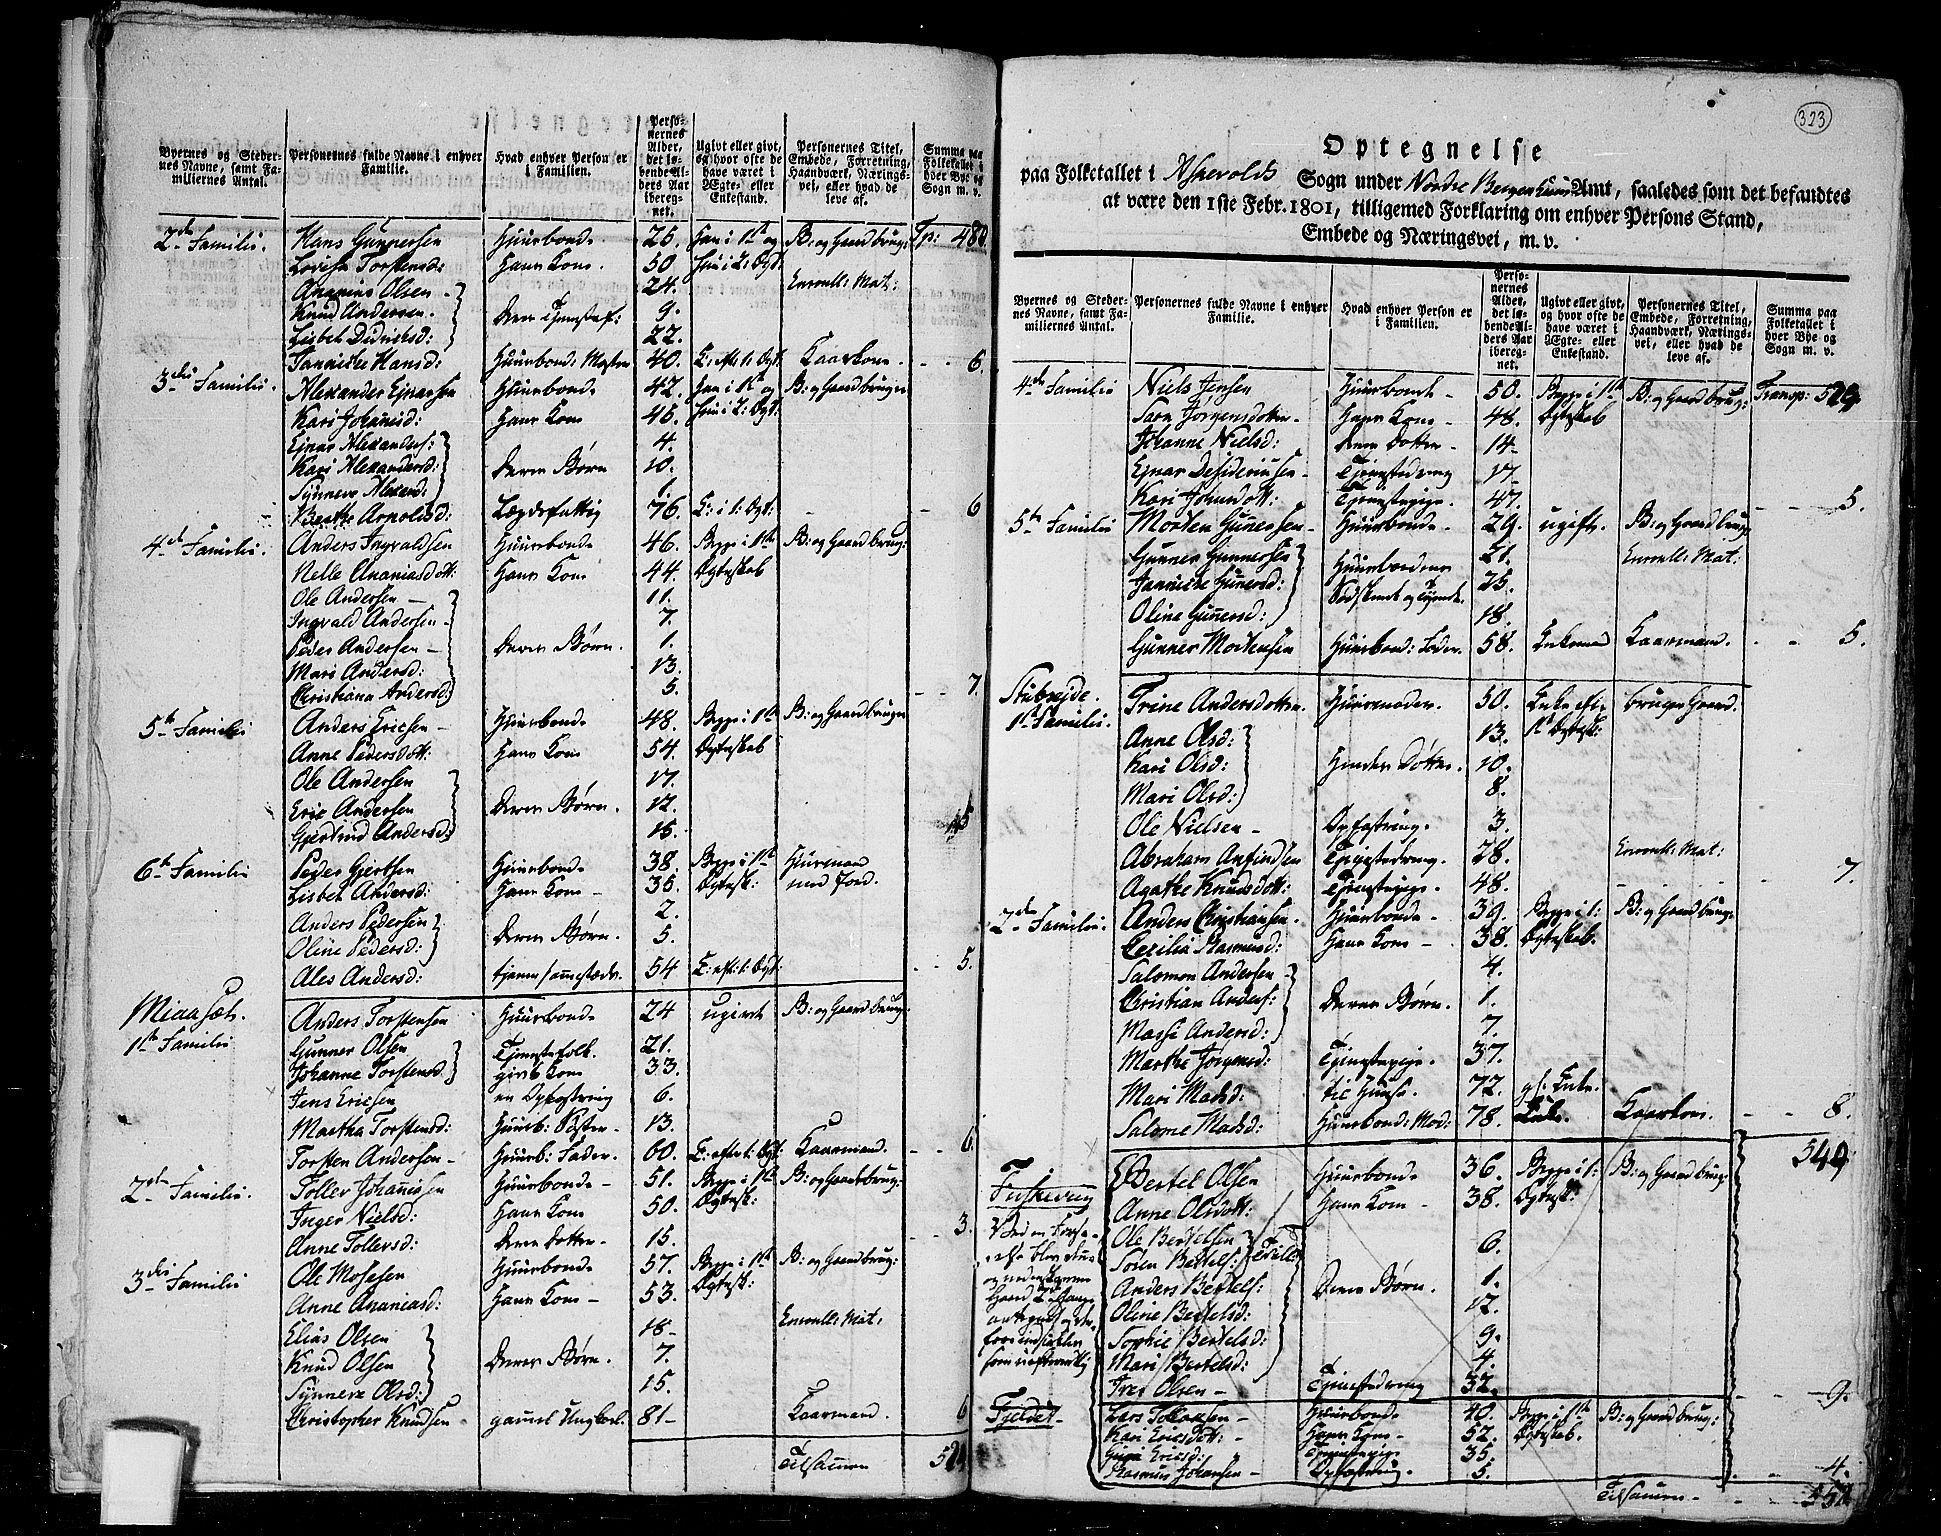 Byernes og Steder-
nes Navne, samt Fa-
miliernes Antal.
Personernes fulde Navne i enhver
Familie.
Hvad enhver Person er
i Familien.
Perso-
nernes
Alder,
det lø-
bende Al-
ders Aar
iberegnet.
Ugivt eller givt,
og hvor ofte de
have været i
Ægte- eller
Enkestand.
Personernes Titel,
Embede, Forretning,
Haandværk, Nærings-
vei, eller hvad de
leve af.
Summa paa
Folketallet i
hver By og
Sogn m. v.
2de Familie. Hans Gunnersen Huusbonde 25. Han i 1te og B: og Gaardbrug: Tp: 480
Lovisa Torstensd: Hans Kone. 50 hun i 2: Ægt:
Ananias Olsen 24. Enroll: Mat:
Knud Andersen. Deres Tjenestef: 9.
Lisbet Didrichsd: 22.
Jannicke Hansd: Huusbond: Moster 40. E: eft: 1: Ægt: Kaarkone. - - 6.
3die Familie. Alexander Ejnarsen Huusbonde 42. Han i 1te og B: og Gaardbruger
Kari Johannsd: Hans Kone 45. hun i 2: Ægt:
Ejnar Alexanders: 4.
Kari Alexandersd: Deres Børn 10.
Synneve Alexand: 1.
Berthe Arnoldsd: Lægdsfattig 76. E: i 1: Ægt: - 6
4de Familie. Anders Ingvaldsen Huusbonde 46. Begge i 1te B: og Gaardbrug:
Nelle Ananiasdott: Hans Kone 44. Ægteskab
Ole Andersen 11.
Ingvald Andersen 7.
Peder Andersen Deres Børn. 1.
Mari Andersd: 13.
Christiana Andersd: 5. - - 7.
5te Familie Anders Ericsen Huusbonde 48. Begge i 1te B: og Gaardbruger
Anne Pedersdott: Hans Kone 54. Ægteskab
Ole Andersen 17.
Eric Andersen Deres Børn. 12.
Gjertrud Andersd: 15. 5
6te Familie Peder Gjertsen Huusbonde 38. Begge i 1te Huusmand
Lisbet Andersd: Hans Kone 35. Ægtesk: med Jord.
Anders Pedersen 2.
Oline Pedersd: Deres Børn. 5.
Ales Andersd: tjener sammesteds. 54 E: eft: 1: Ægt: - - 5.
Miaasæt. Anders Torstensen Huusbonde 24 ugivt B: og Gaardbrug:
1te Familie Gunner Olsen Tjenestefolk. 21.
Johanne Torstensd. givt Kone 33.
Jens Ericsen en Opfostring 6.
Martha Torstensd: Huusb: Søster 13.
Torsten Andersen Huusb: Fader. 60. E: efter 1: Ægt: Kaarmand. - - 6.
2den Familie. Toller Johannsen Huusbonde 51. Begge i 1te B: og Gaardbrug:
Inger Nielsd: Hans Kone 50. Ægtesk:
Anne Tollersd: Deres Dotter 15. - - 3.
3die Familie Ole Mosesen Huusbonde 57. Begge i 1te B: og Gaardbrug:
Anne Ananiasd: Hans Kone 53. Ægtesk:
Elias Olsen 18 Enroll: Mat:
Knud Olsen Deres Børn. 7.
Synneve Olsd: 15.
Christopher Knudsen gamel Ungkarl. 81 Kaarmand. 6
Tilsamen
323
Optegnelse
paa Folketallet i Askevolds Sogn under Nordre Bergenhuus Amt, saaledes som det befandtes
at være den 1ste Febr. 1801, tilligemed Forklaring om enhver Persons Stand,
Embede og Næringsvei, m. v.
Byernes og Steder-
nes Navne, samt Fa-
miliernes Antal.
Personernes fulde Navne i enhver
Familie.
Hvad enhver Person er
i Familien.
Perso-
nernes
Alder,
det lø-
bende Al-
ders Aar
iberegnet.
Ugivt eller givt,
og hvor ofte de
have været i
Ægte- eller
Enkestand.
Personernes Titel,
Embede, Forretning,
Haandværk, Nærings-
vei, eller hvad de
leve af.
Summa paa
Folketallet i
hver Bye og
Sogn m. v.
4de Familie Niels Jensen Huusbonde 50. Begge i 1te B: og Gaardbrug: Transp: 524
Sara Jørgensdotter Hans Kone 48. Ægteskab
Johanne Nielsd: Deres Dotter 14
Ejnar Desideriussen Tjenestedreng 17
Kari Johnsdott: Tjenestepige 47. - - 5.
5te Familie Morten Gunersen Huusbonde 29. ugift. B: og Gaardbrug:
Gunner Gunnersen Huusbondens 21. Enroll: Mat:
Jannicke Gunersd: Sødskende og Tyende. 25.
Oline Gunersd: 18.
Gunner Mortensen Huusbond: Fader 58. Enkemand Kaarmand. - - 5.
Stubseide. Trine Andersdotter Huusmoder. 50. Enke efter bruger Gaard.
1te Familie. Anne Olsd: 13. 1te Ægtesk:
Kari Olsd: Hendes Døttre. 10.
Mari Olsd: 8.
Ole Nielsen Opfostring. 3.
Abraham Anfindsen Tjenestedreng. 28. Enroll: Mat:
Agathe Knudsdott: Tjenestepige. 48. 7.
2den Familie. Anders Christiansen. Huusbonde 39. Begge i 1: B: og Gaardbrug:
Cecilia Rasmusd: Hans Kone 38. Ægteskab.
Salomon Andersen 4.
Christian Anders: Deres Børn. 1.
Massi Andersd: 7.
Marthe Jørgensd: Tjenestepige. 37.
Mari Madsd: til Huuse. 72. gl: Enke.
Salome Madsd: Huusbond: Mod: 78. Enke. Kaarkone. - - 8.
549
Bertel Olsen Huusbonde 36. Begge i 1: B: og Gaardbrug:
Anne Olsdott: Hans Kone 38. Ægtesk:
Ole Bertelsen
Søren Bertels: Tvillin 6.
Anders Bertels: Deres Børn. 1.
Oline Bertelsd: 12.
Sophie Bertelsd: 9.
Mari Bertelsd: 4.
Iver Olsen Tjenestedreng 32. 9.
Fjeldet Lars Huusbonde 40. Begge i 1te B: og Gaardbrug:
Kari Ericsdott: Hans Kone 52. Ægteskab.
Guri Ericsd: Tjenestepige 35.
Rasmus Johansen Opfostring. 5. - - 4.
Tilsamen